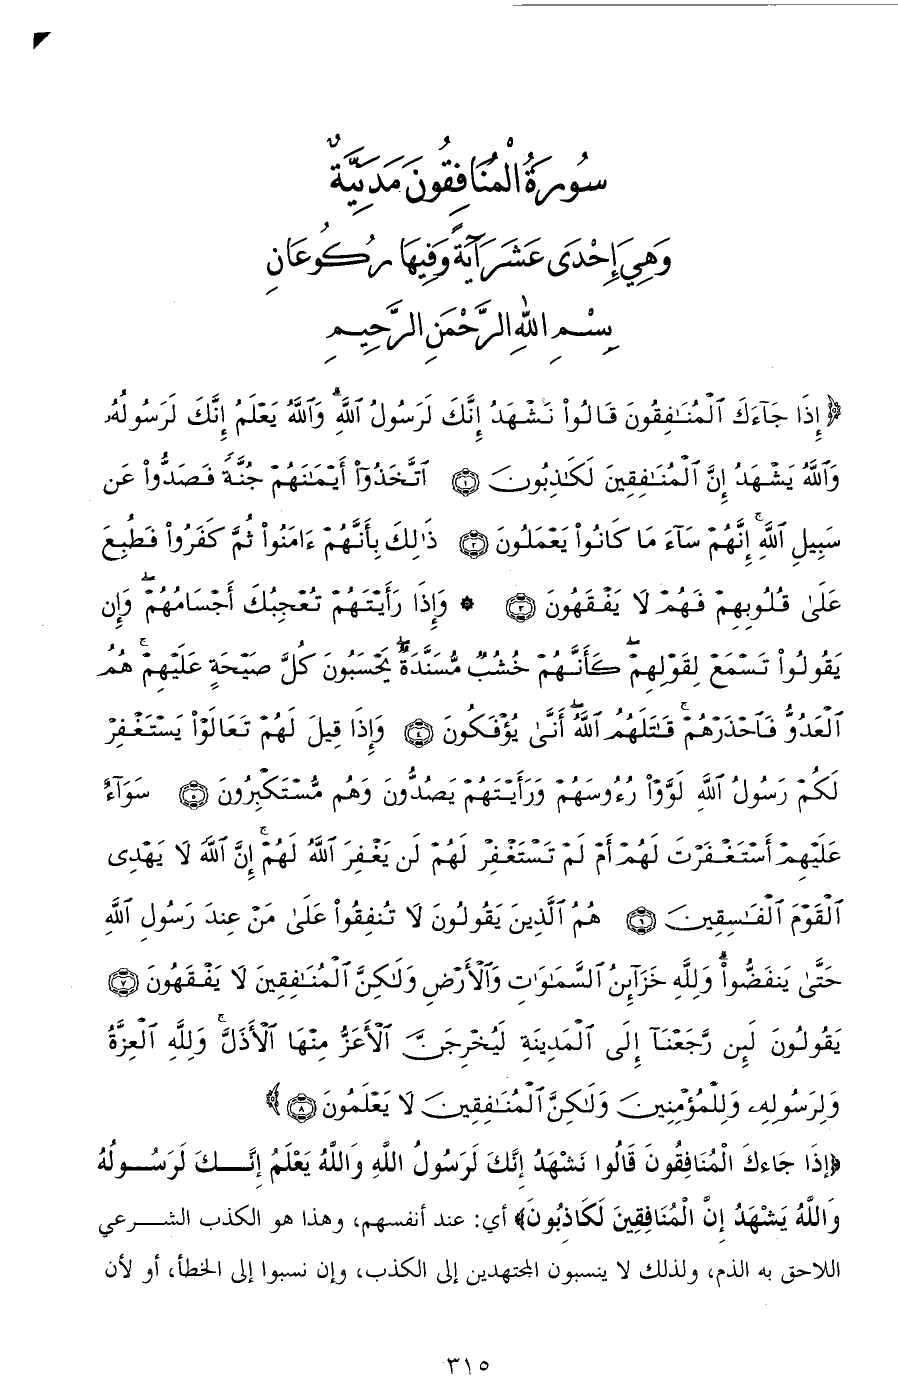 سُورَةُ الْمُنَافِقُونَ مَدَنِيَّةٌ
وَهِيَ إِحْدَى عَشَرَ آيَةً وَفِيهَا رُكُوعَانِ
بِسْمِ اللهِ الرَّحْمَنِ الرَّحِيمِ
﴿إِذَا جَآءَكَ ٱلْمُنَٰفِقُونَ قَالُوا۟ نَشْهَدُ إِنَّكَ لَرَسُولُ ٱللَّهِ ۗ وَٱللَّهُ يَعْلَمُ إِنَّكَ لَرَسُولُهُۥ
وَٱللَّهُ يَشْهَدُ إِنَّ ٱلْمُنَٰفِقِينَ لَكَٰذِبُونَ ١ ٱتَّخَذُوٓا۟ أَيْمَٰنَهُمْ جُنَّةً فَصَدُّوا۟ عَن
سَبِيلِ ٱللَّهِ ۚ إِنَّهُمْ سَآءَ مَا كَانُوا۟ يَعْمَلُونَ ٢ ذَٰلِكَ بِأَنَّهُمْ ءَامَنُوا۟ ثُمَّ كَفَرُوا۟ فَطُبِعَ
عَلَىٰ قُلُوبِهِمْ فَهُمْ لَا يَفْقَهُونَ ٣ * وَإِذَا رَأَيْتَهُمْ تُعْجِبُكَ أَجْسَامُهُمْ ۖ وَإِن
يَقُولُوا۟ تَسْمَعْ لِقَوْلِهِمْ ۖ كَأَنَّهُمْ خُشُبٌ مُّسَنَّدَةٌ ۖ يَحْسَبُونَ كُلَّ صَيْحَةٍ عَلَيْهِمْ ۚ هُمُ
ٱلْعَدُوُّ فَٱحْذَرْهُمْ ۚ قَٰتَلَهُمُ ٱللَّهُ ۖ أَنَّىٰ يُؤْفَكُونَ ٤ وَإِذَا قِيلَ لَهُمْ تَعَالَوْا۟ يَسْتَغْفِرْ
لَكُمْ رَسُولُ ٱللَّهِ لَوَّوْا۟ رُءُوسَهُمْ وَرَأَيْتَهُمْ يَصُدُّونَ وَهُم مُّسْتَكْبِرُونَ ٥ سَوَآءٌ
عَلَيْهِمْ أَسْتَغْفَرْتَ لَهُمْ أَمْ لَمْ تَسْتَغْفِرْ لَهُمْ لَن يَغْفِرَ ٱللَّهُ لَهُمْ ۚ إِنَّ ٱللَّهَ لَا يَهْدِى
ٱلْقَوْمَ ٱلْفَٰسِقِينَ ٦ هُمُ ٱلَّذِينَ يَقُولُونَ لَا تُنفِقُوا۟ عَلَىٰ مَنْ عِندَ رَسُولِ ٱللَّهِ
حَتَّىٰ يَنفَضُّوا۟ ۗ وَلِلَّهِ خَزَآئِنُ ٱلسَّمَٰوَٰتِ وَٱلْأَرْضِ وَلَٰكِنَّ ٱلْمُنَٰفِقِينَ لَا يَفْقَهُونَ ٧
يَقُولُونَ لَئِن رَّجَعْنَآ إِلَى ٱلْمَدِينَةِ لَيُخْرِجَنَّ ٱلْأَعَزُّ مِنْهَا ٱلْأَذَلَّ ۚ وَلِلَّهِ ٱلْعِزَّةُ
وَلِرَسُولِهِۦ وَلِلْمُؤْمِنِينَ وَلَٰكِنَّ ٱلْمُنَٰفِقِينَ لَا يَعْلَمُونَ ٨﴾
﴿إِذَا جَاءكَ الْمُنَافِقُونَ قَالُوا نَشْهَدُ إِنَّكَ لَرَسُولُ اللَّهِ وَاللَّهُ يَعْلَمُ إِنَّكَ لَرَسُولُهُ
وَاللَّهُ يَشْهَدُ إِنَّ الْمُنَافِقِينَ لَكَاذِبُونَ﴾ أي: عند أنفسهم، وهذا هو الكذب الشرعي
اللاحق به الذم، ولذلك لا ينسبون المجتهدين إلى الكذب، وإن نسبوا إلى الخطأ، أو لأن
٣١٥